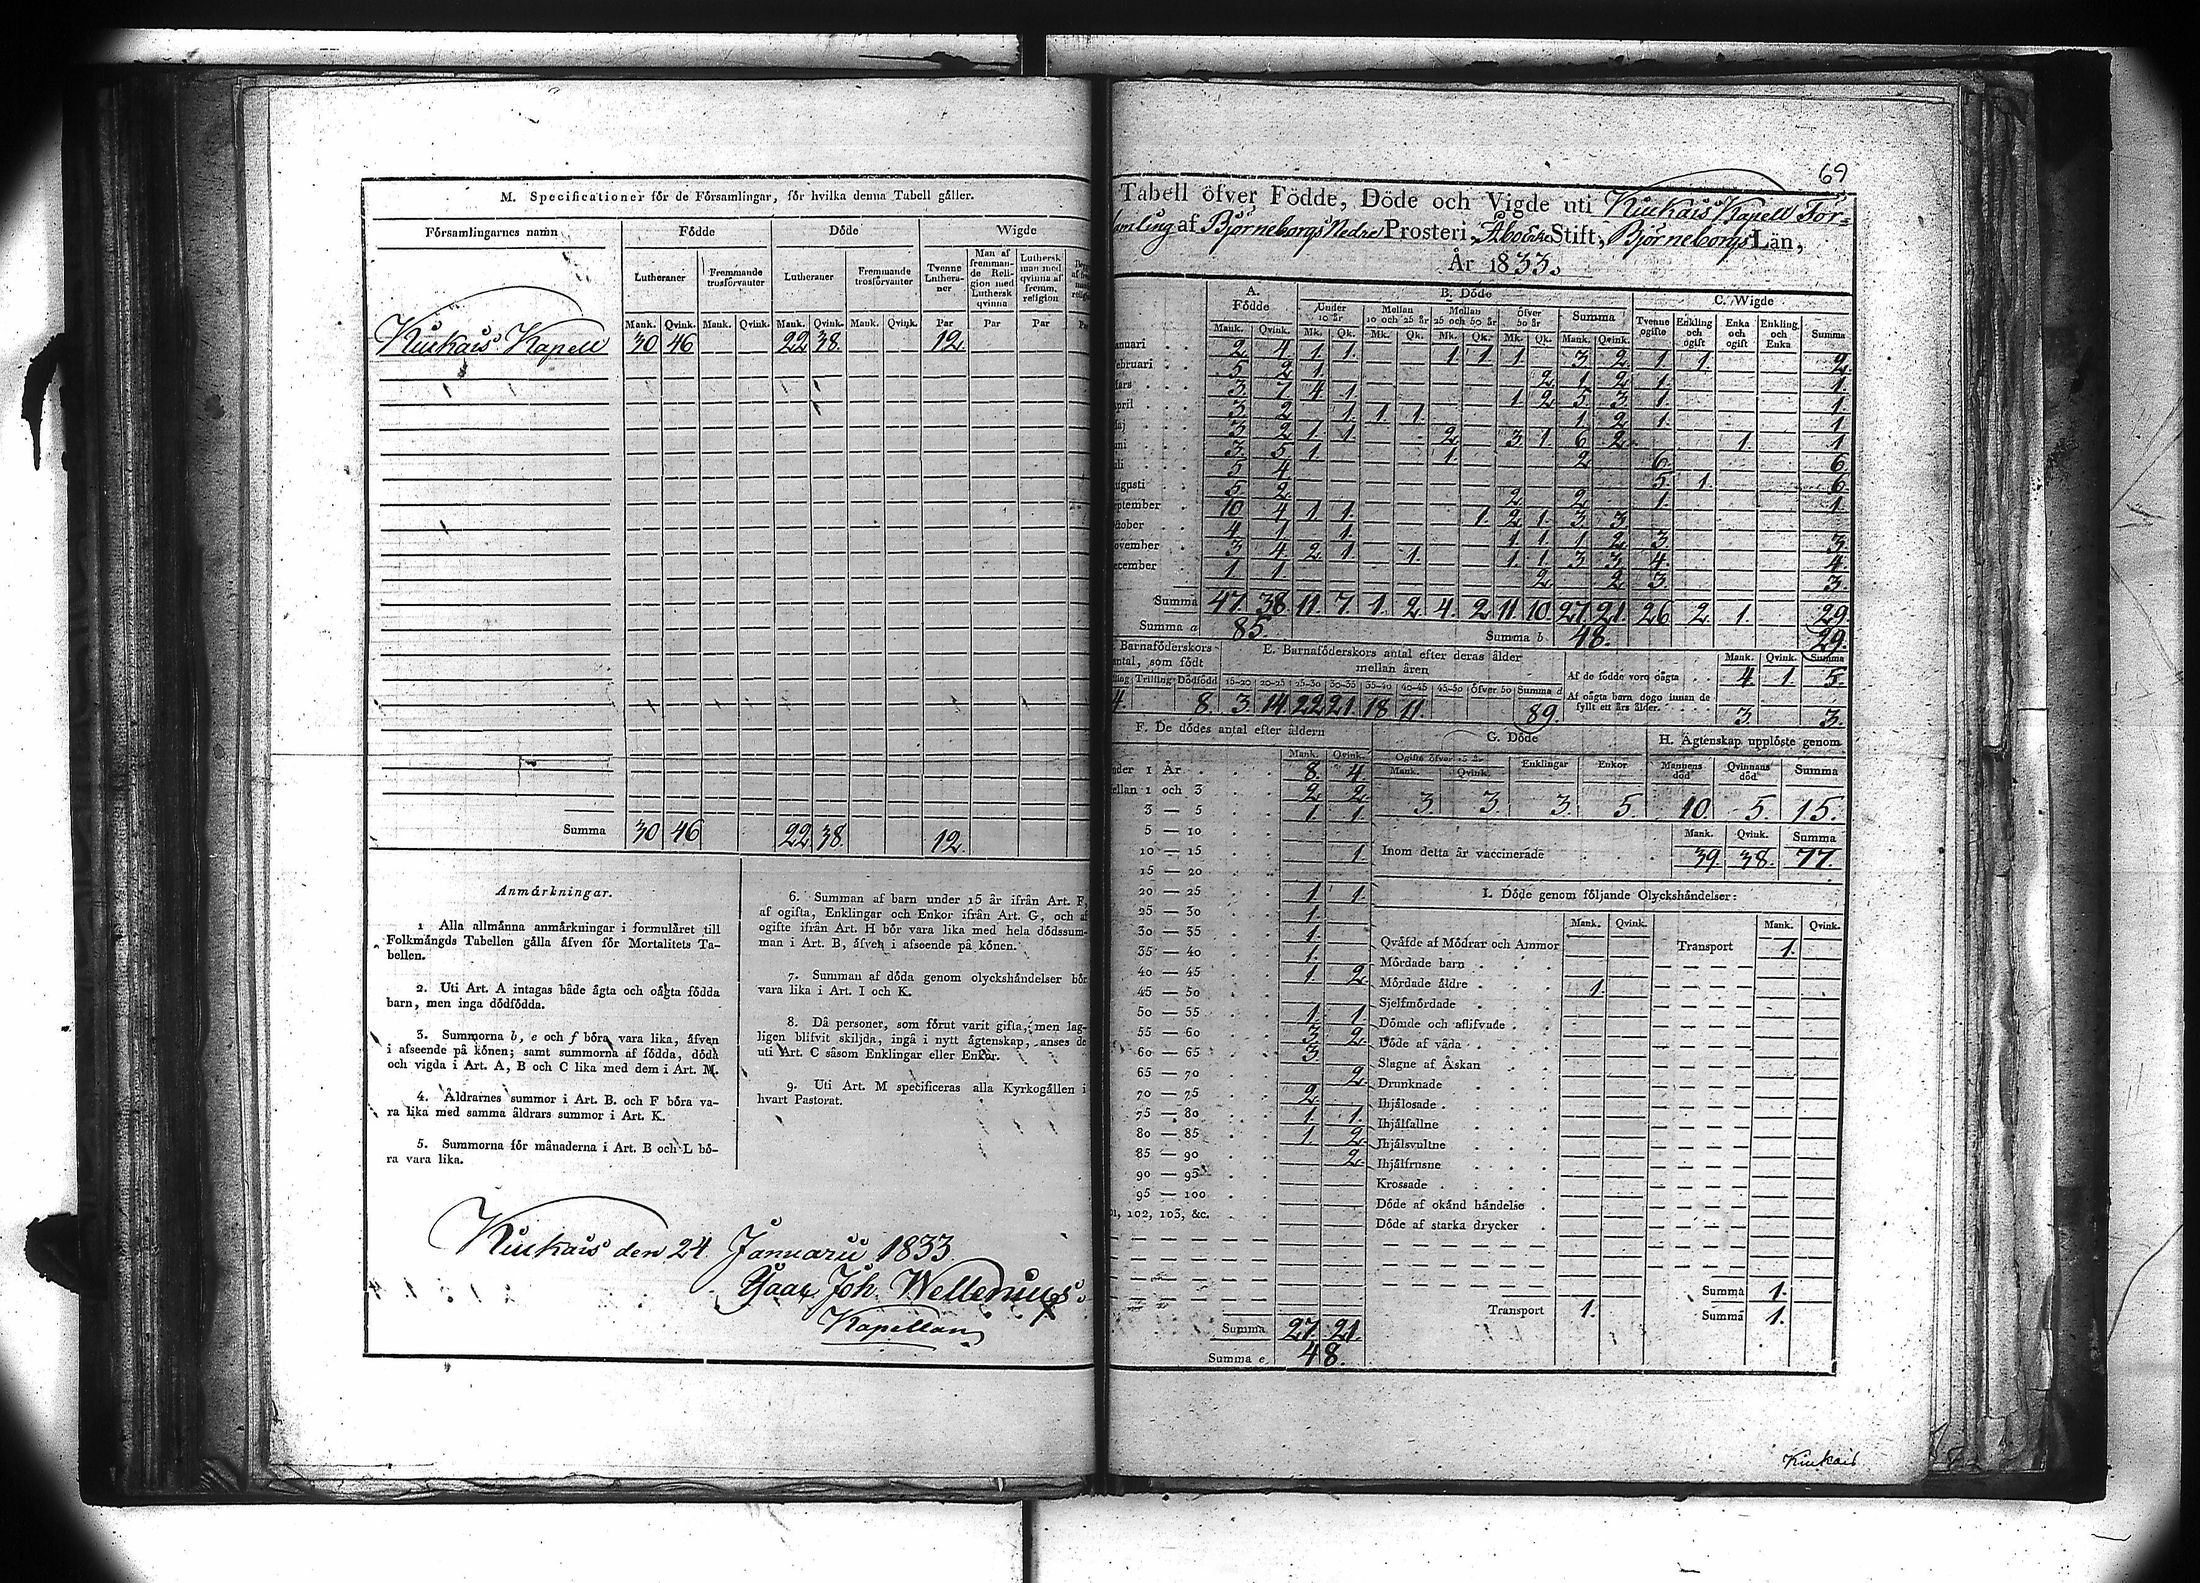 M. Specificationer för de Församlingar, för hvilka denna Tabell gäller.
Församlingarnes namn Födde Döde Wigde
Lutheraner Fremmande trosförvanter Lutheraner Fremmande trosförvanter Tvenne Lutheraner Man af fremmande Religion med Luthersk qvinna Luthersk man med qvinna af fremm. religion
Mank. Qvink. Mank. Qvink. Mank. Qvink. Mank. Qvink. Par Par Par
Kiukais Kapell 30 46 22 38. 12
Summa 30 46 22 38. 12.
Anmärkningar.
1 Alla allmänna anmärkningar i formuläret till
Folkmängds Tabellen gälla äfven för Mortalitets Ta-
bellen.
2. Uti Art. A intagas både ägta och oägta födda
barn, men inga dödfödda.
3. Summorna b, e och f böra vara lika, äfven
i afseende på könen; samt summorna af födda, döda
och vigda i Art. A, B och C lika med dem i Art. M.
4. Åldrarnes summor i Art. B. och F böra va-
ra lika med samma åldrars summor i Art. K.
5. Summorna för månaderna i Art. B och L bö-
ra vara lika.
6. Summan af barn under 15 år ifrån Art. F,
af ogifta, Enklingar och Enkor ifrån Art. G, och af
ogifte ifrån Art. H bör vara lika med hela dödssum-
man i Art. B, äfven i afseende på könen.
7. Summan af döda genom olyckshändelser bör
vara lika i Art. I och K.
8. Då personer, som förut varit gifta, men lag-
ligen blifvit skiljda, ingå i nytt ägtenskap, anses de
uti Art. C såsom Enklingar eller Enkor.
9. Uti Art. M specificeras alla Kyrkogällen i
hvart Pastorat.
Kiukais den 24 Januarii 1833
Isaac Joh. Wellenius
Kapellan
69
Tabell öfver Födde, Döde och Vigde uti Kiukais Kapell För=
samling af Björneborgs Nedre Prosteri, Åbo Erke Stift, Björneborgs Län,
År 1833.
A. Födde B. Döde C. Wigde
Under 10 år Mellan 10 och 25 år Mellan 25 och 50 år öfver 50 år Summa Tvenne ogifte Enkling och ogift Enka och ogift Enkling och Enka Summa
Mank. Qvink. Mk. Qk. Mk. Qk. Mk. Qk. Mk. Qk. Mank. Qvink.
anuari 2 4 1 1 1 1 1 3 2 1 1 2
ebruari 5 2 1 2 1 2 1 1
ars 3 7 4 1 1 2 5 3 1 1
pril 3 2 1 1 1 1 2 1 1
aj 3 2 1 1 2 3 1 6 2 1 1
ni 3 5 1 1 2 6 6
li 5 4 5 1 6
ugusti 5 2 2 2 1 1
eptember 10 4 1 1 1 2 1 3 3
ktober 4 1 1 1 1 1 2 3 3
ovember 3 4 2 1 1 1 1 3 3 4 4
ecember 1 1 2 2 3 3
Summa 47 38 11 7 1 2 4 2 11 10 27 21 26 2 1 29
Summa a 85 Summa b 48. 29.
Barnaföderskors antal, som födt E. Barnaföderskors antal efter deras ålder mellan åren Mank. Qvink. Summa
Trilling Dödfödd 15-20 20-25 25-30 30-35 35-40 40-45 45-50 öfver 50 Summa d
4. 8. 3 14 22 21 18 11 89.
Af de födde voro oägta 4 1 5
Af oägta barn dogo innan de fyllt ett års ålder 3 3
F. De dödes antal efter åldern
Mank. Qvink.
nder 1 År 8 4
ellan 1 och 3 2 2
3 — 5 1 1
5 — 10
10 — 15 1
15 — 20
20 — 25 1 1
25 — 30 1
30 — 35 1
35 — 40 1
40 — 45 1 2
45 — 50
50 — 55 1 1
55 — 60 3 2
60 — 65 3
65 — 70 2
70 — 75 2
75 — 80 1 1
80 — 85 1 2
85 — 90 2
90 — 95
95 — 100
101, 102, 103, &c.
Summa 27 21
Summa e 48.
G. Döde H. Ägtenskap upplöste genom
Ogifte öfver 15 år Enklingar Enkor Mannens död Qvinnans död Summa
Mank. Qvink.
3 3 3 5 10 5 15
Mank. Qvink. Summa
Inom detta år vaccinerade 39 38 77
I. Döde genom följande Olyckshändelser:
Mank. Qvink. Mank. Qvink.
Qväfde af Mödrar och Ammor Transport 1.
Mördade barn
Mördade äldre 1
Sjelfmördade
Dömde och aflifvade
Döde af våda
Slagne af Åskan
Drunknade
Ihjälosade
Ihjälfallne
Ihjälsvultne
Ihjälfrusne
Krossade
Döde af okänd händelse
Döde af starka drycker
Summa 1.
Transport 1. Summa 1.
Kiukais